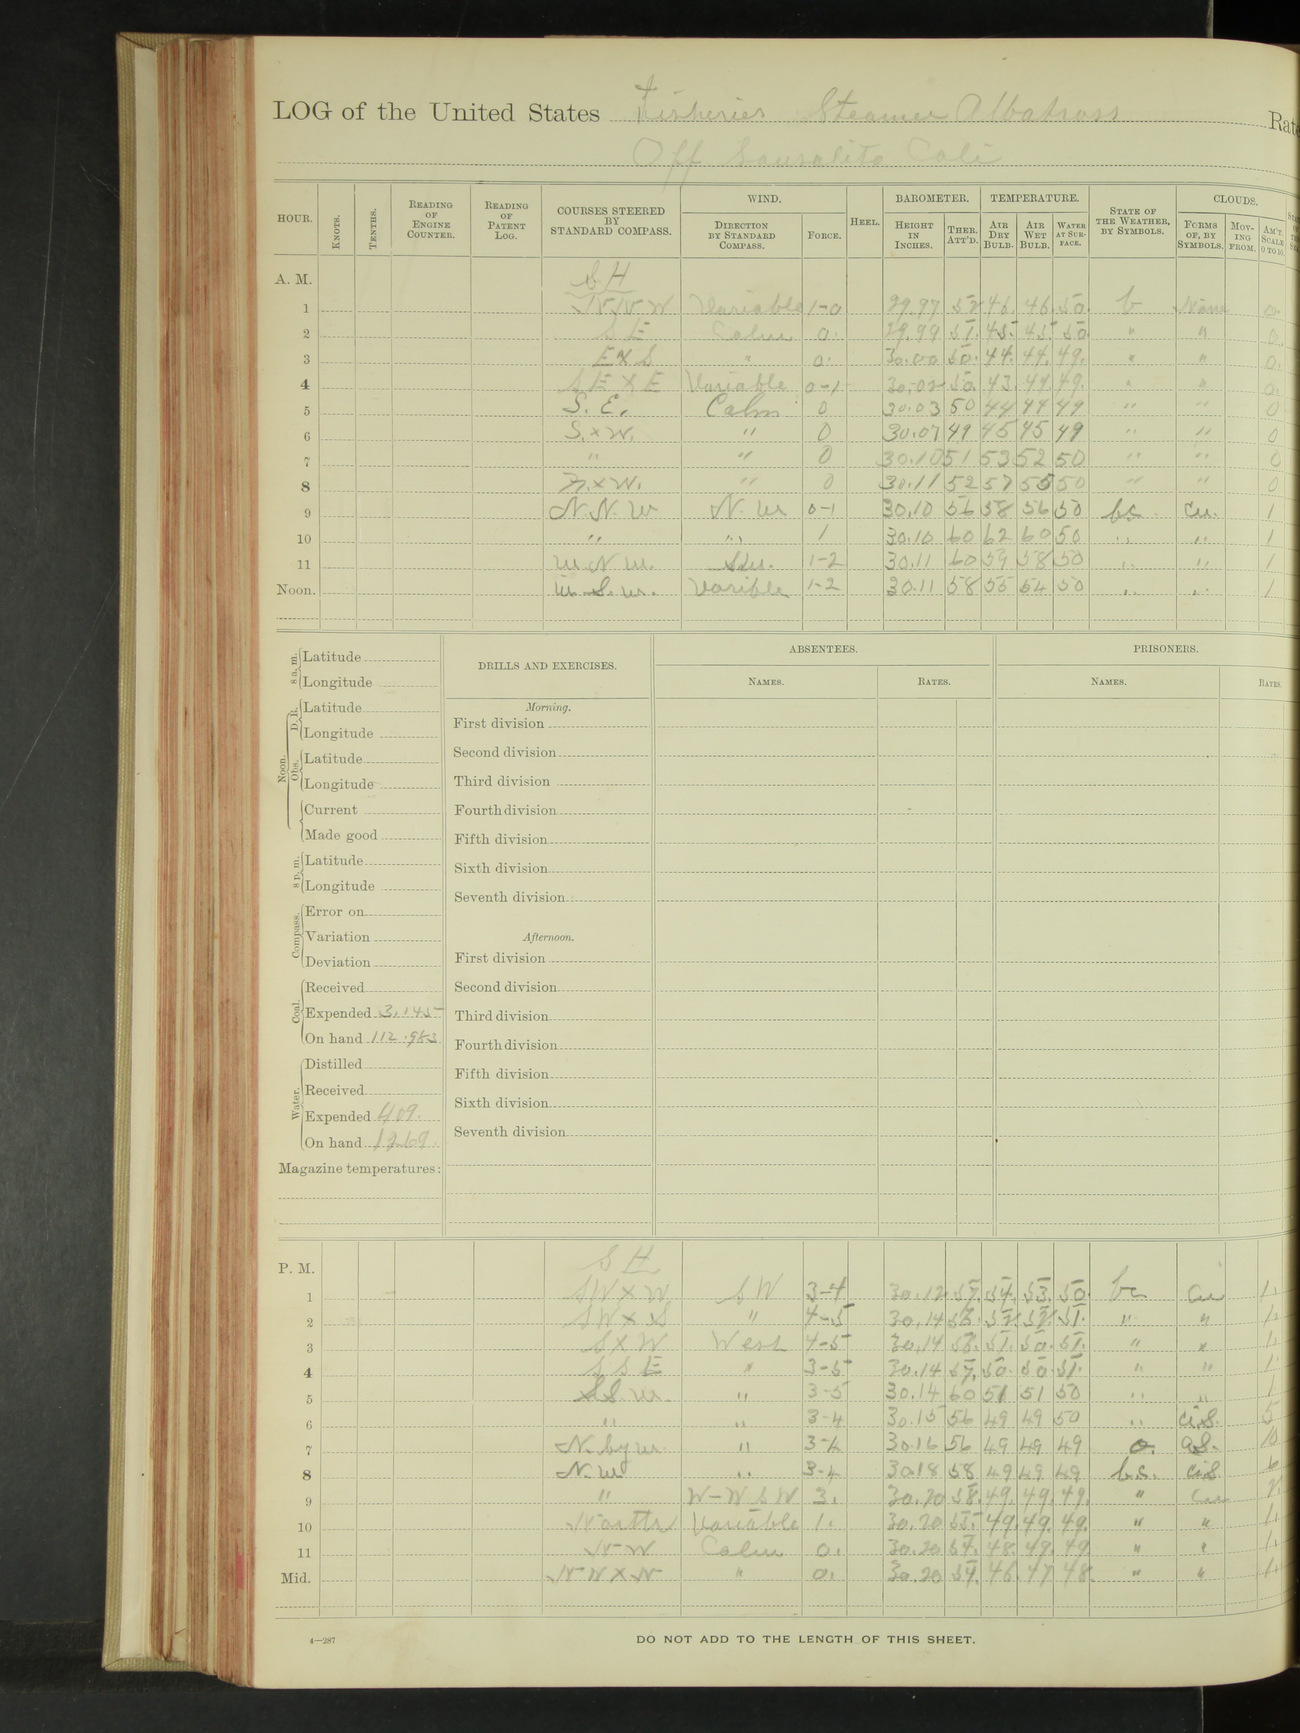 LOG of the United States Fisheries Steamer Albatross Rate
Off Sausalito Cali
HOUR. KNOTS. TENTHS. READING OF ENGINE COUNTER. READING OF PATENT LOG. COURSES STEERED BY STANDARD COMPASS. WIND. DIRECTION BY STANDARD COMPASS. FORCE. HEEL. BAROMETER. HEIGHT IN INCHES. THER. ATT'D. TEMPERATURE. AIR DRY BULB. AIR WET BULB. WATER AT SURFACE. STATE OF THE WEATHER, BY SYMBOLS. CLOUDS. FORMS OF, BY SYMBOLS. MOVING FROM. AM'T. SCALE 0 TO 10.
A. M. S H
1 N N W Variable 1-0 29.97 52 46. 46. 50. b None 0.
2 S E Calm 0. 29.99 51. 45. 45. 50 " " 0.
3 E x S " 0. 30.00 50. 44. 44. 49. " " 0.
4 S E x E Variable 0-1 30.02 50. 43. 44. 49. " " 0.
5 S. E. Calm 0 30.03 50 44 44 49 " " 0
6 S. x W. " 0 30.07 49 45 45 49 " " 0
7 " " 0 30.10 51 53 52 50 " " 0
8 x W. " 0 30.11 52 57 55 50 " " 0
9 N. N. W N. W 0-1 30.10 56 58 56 50 bc. cu. 1
10 " " 1 30.10 60 62 60 50 " " 1
11 W. N. W. 1-2 30.11 60 59 58 50 " " 1
Noon. W. S. W. Varible 1-2 30.11 58 55 54 50 " " 1
8 a. m. Latitude
Longitude
Noon. D. R. Latitude
Longitude
Obs. Latitude
Longitude
Current
Made good
8 p. m. Latitude
Longitude
Compass. Error on
Variation
Deviation
Coal. Received
Expended 3.145
On hand 112.983
Water. Distilled
Received
Expended 409.
On hand
Magazine temperatures:
DRILLS AND EXERCISES.
Morning.
First division
Second division
Third division
Fourth division
Fifth division
Sixth division
Seventh division
Afternoon.
First division
Second division
Third division
Fourth division
Fifth division
Sixth division
Seventh division
ABSENTEES.
NAMES. RATES.
PRISONERS.
NAMES. RATES.
P. M. S H
1 SW x W SW 3-4 30.12 57. 54. 53. 50. bc cu 1.
2 SW x S " 4-5 30.14 52. 52. 51. " " 1.
3 S x W West 4-5 30.14 58. 51. 50. 51. " " 1.
4 S S E " 3-5 30.14 57. 50. 50. 51. " " 1.
5 S S. W. " 3-5 30.14 60 51 51 50 " " 1
6 " " 3-4 30.15 56 49 49 50 " ci.S. 5
7 N. by W. " 3-4 30.16 56 49 49 49 o. 10
8 N. W " 3-4 30.18 58 49 49 49 b.c. ci.S. 6
9 " W-WSW 3. 30.20 58. 49. 49. 49. " 2.
10 North Variable 1. 30.20 55. 49. 49. 49. " " 1.
11 N W Calm 0. 30.20 57. 48. 49. 49 " " 1.
Mid. N W x N " 0. 30.20 54. 46. 47. 48. " " 1.
4—287 DO NOT ADD TO THE LENGTH OF THIS SHEET.